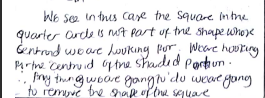 We see in this case the square in the
quarter circle is not part of the shape whose
Centroid we are looking for. We are looking
for the centroid of the shaded portion.
∴ Any thing we are going to do we are going
to remove the shape of the square